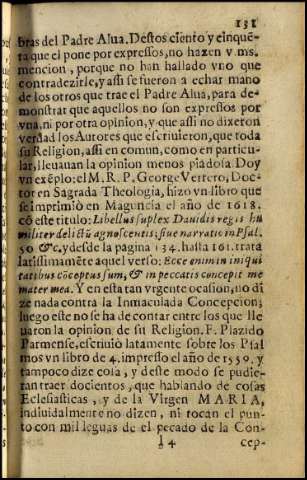 131
bras del Padre Alua. Destos ciento y cinquẽ-
ta que el pone por expressos, no hazen v.ms.
mencion, porque no han hallado vno que
contradezirle, y assi se fueron a echar mano
de los otros que trae el Padre Alua, para de-
monstrar que aquellos no son expressos por
vna, ni por otra opinion, y que assi no dixeron
verdad los Autores que escriuieron, que toda
su Religion, assi en comun, como en particu-
lar, lleuauan la opinion menos piadosa. Doy
vn exẽplo: el M.R.P. George Verrero, Doc-
tor en Sagrada Theologia, hizo vn libro que
se imprimiò en Maguncia el año de 1618.
cõ este titulo: Libellus suplex Dauidis regis hu
militer delictũ agnoscentis; siue narratio in Psal.
50 &c, y desde la pagina 134. hasta 161. trata
latissimamẽte aquel verso: Ecce enim in iniqui
tatibus cõceptus sum, & in peccatis concepit me
mater mea. Y en esta tan vrgente ocasion, no di
ze nada contra la Inmaculada Concepcion;
luego este no se ha de contar entre los que lle
uaron la opinion de su Religion. F. Plazido
Parmense, escriuiò latamente sobre los Psal
mos vn libro de 4. impresso el año de 1559. y
tampoco dize cosa, y deste modo se pudie-
ran traer docientos, que hablando de cosas
Eclesiasticas, y de la Virgen MARIA,
indiuidualmente no dizen, ni tocan el pun-
to con mil leguas de el pecado de la Con-
4
cep-